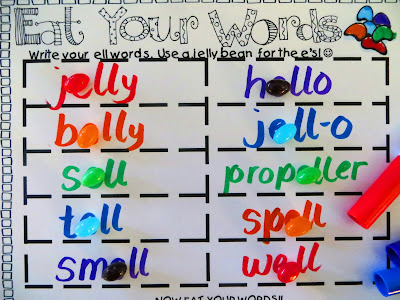 Eat Your Words
Write your ell words. Use a jelly bean for the e's! ☺
jelly hello
belly jell-o
sell propeller
tell spell
smell well
NOW EAT YOUR WORDS!!